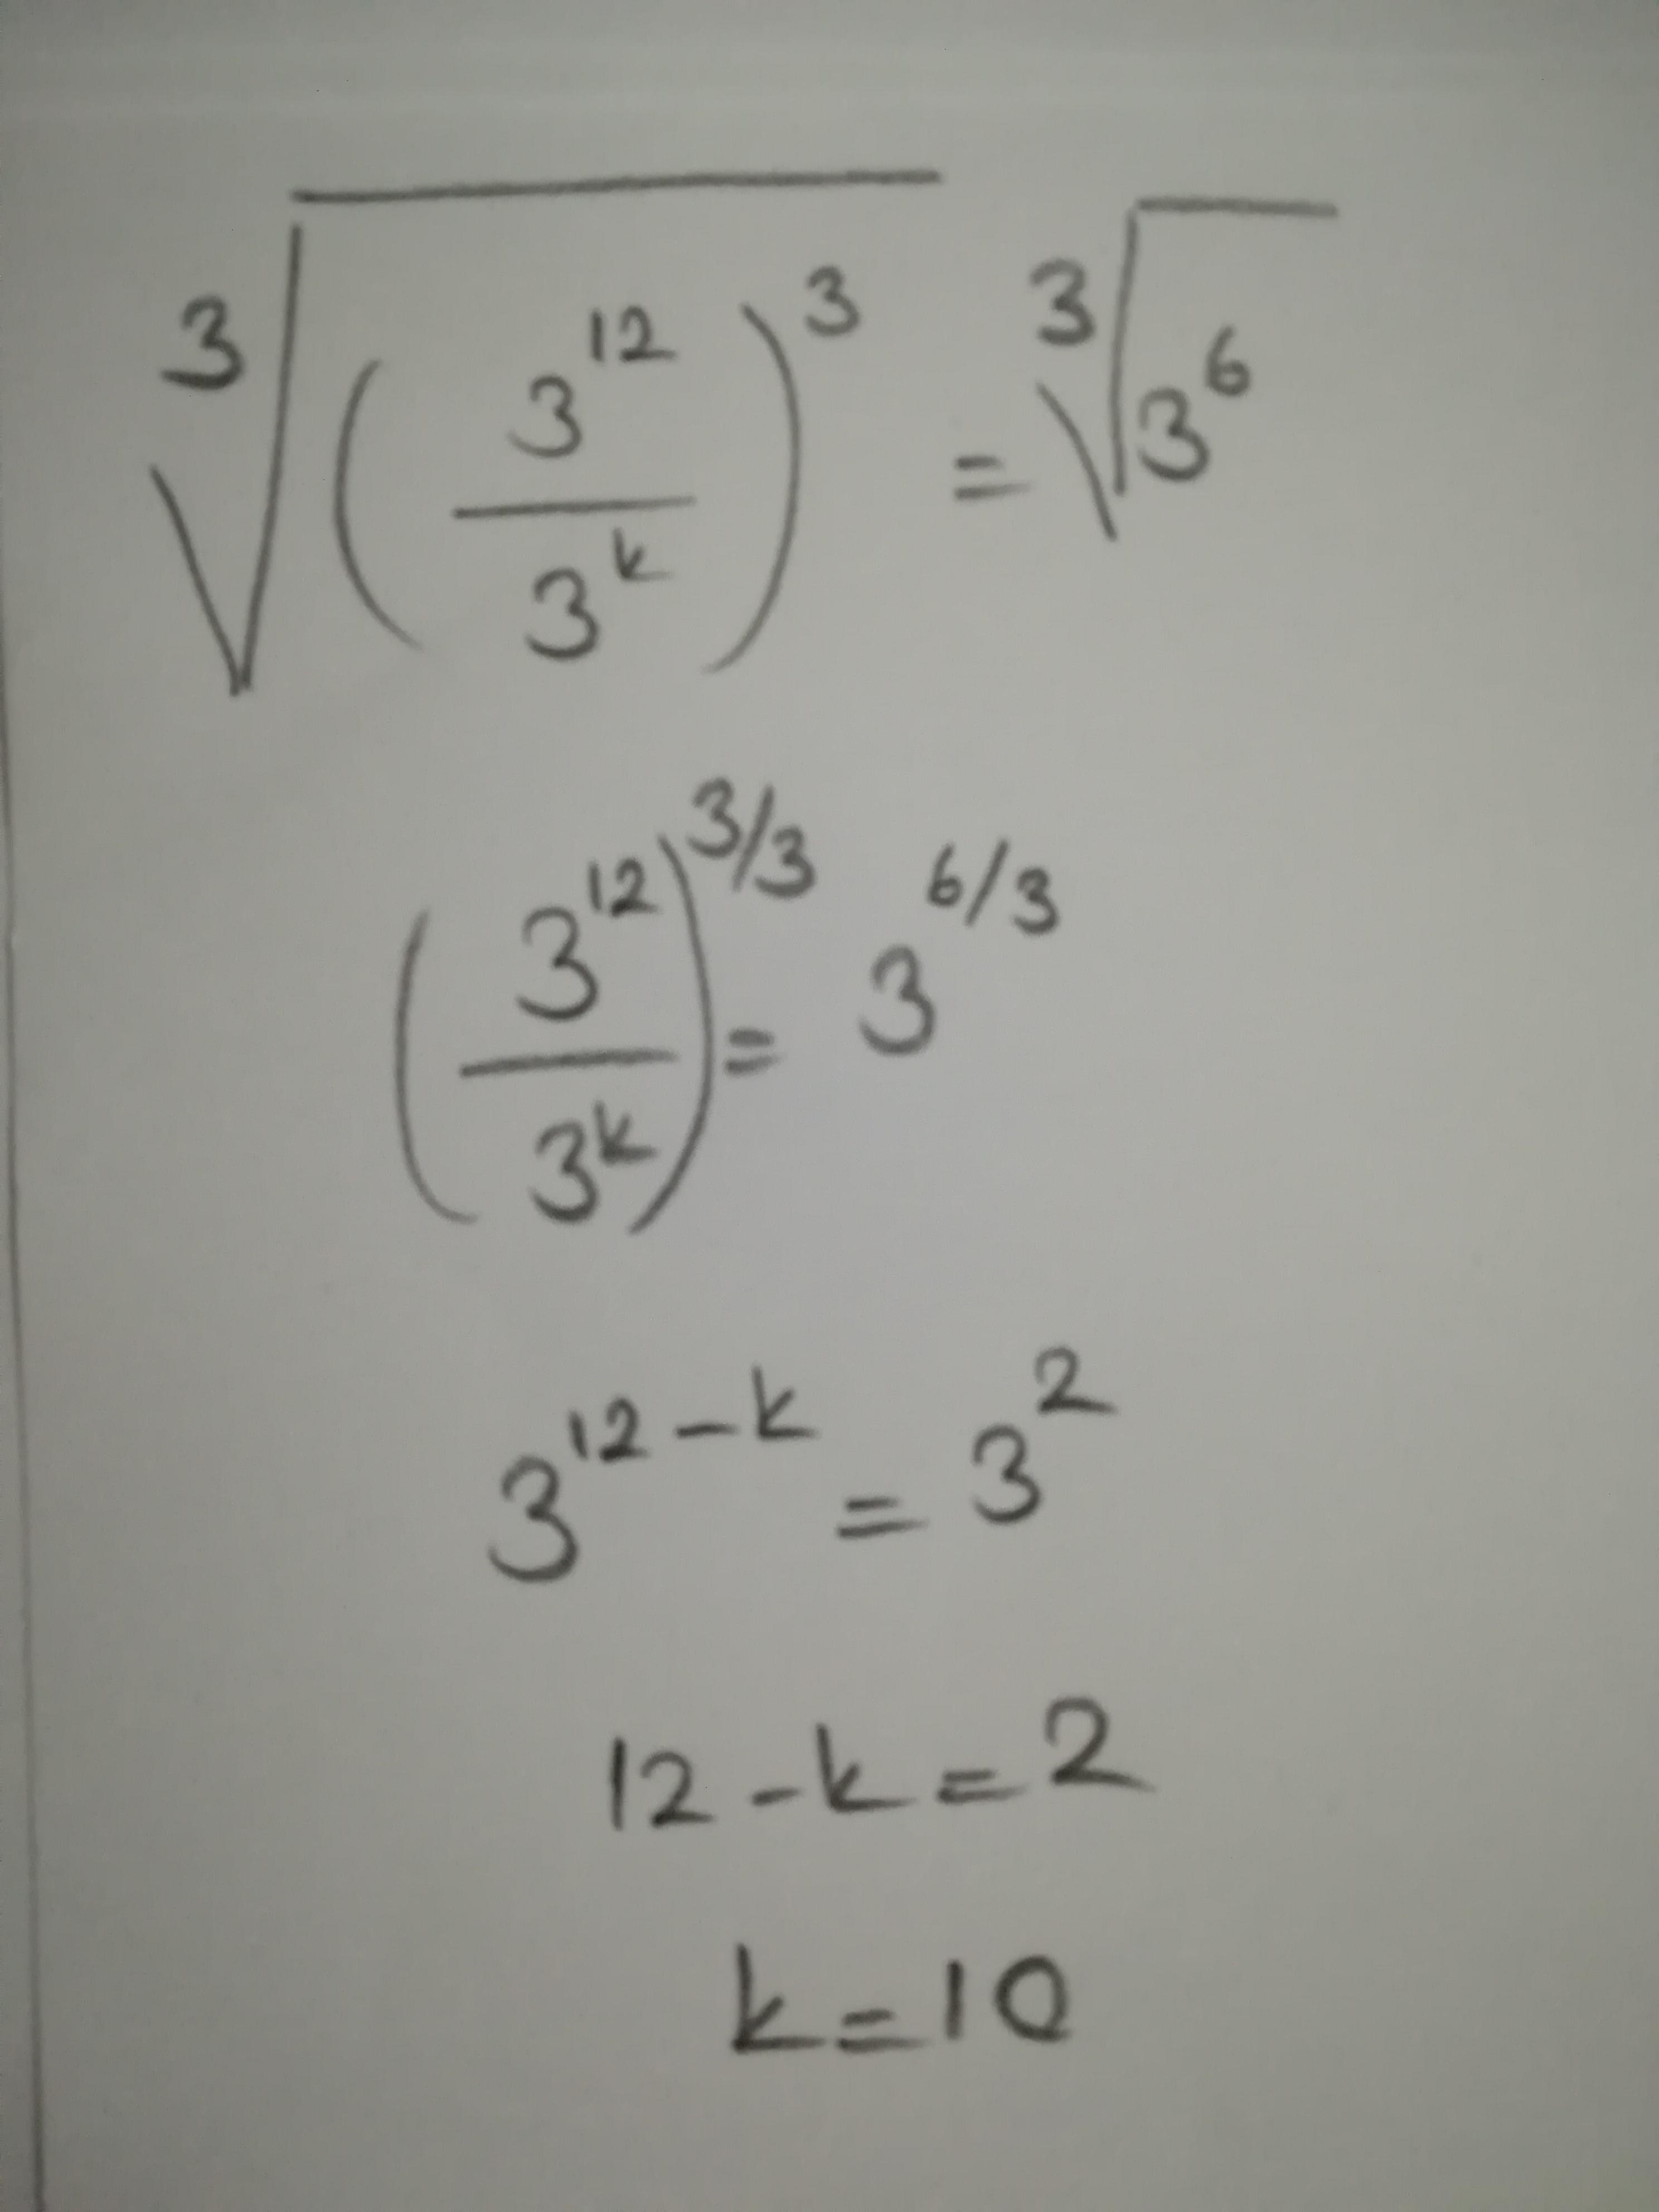 ∛((3^12 / 3^k)^3) = ∛(3^6)
(3^12 / 3^k)^(3/3) = 3^(6/3)
3^(12-k) = 3^2
12 - k = 2
k = 10